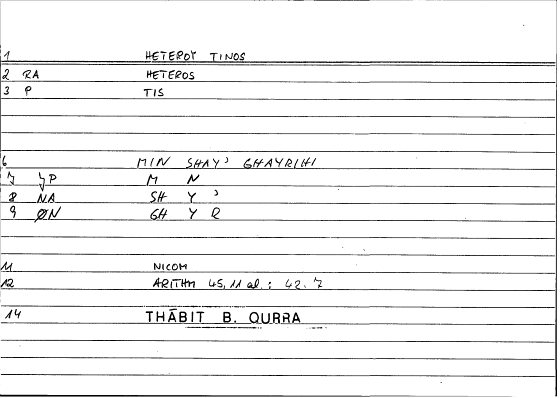 1 HETEROY TINOS
2 RA HETEROS
3 P TIS
6 MIN SHAYʾ GHAYRIHI
7 JP M N
8 NA SH Y ʾ
9 ØN GH Y R
11 NICOM
12 ARITHM 45, 11 al. : 42. 7
14 THĀBIT B. QURRA